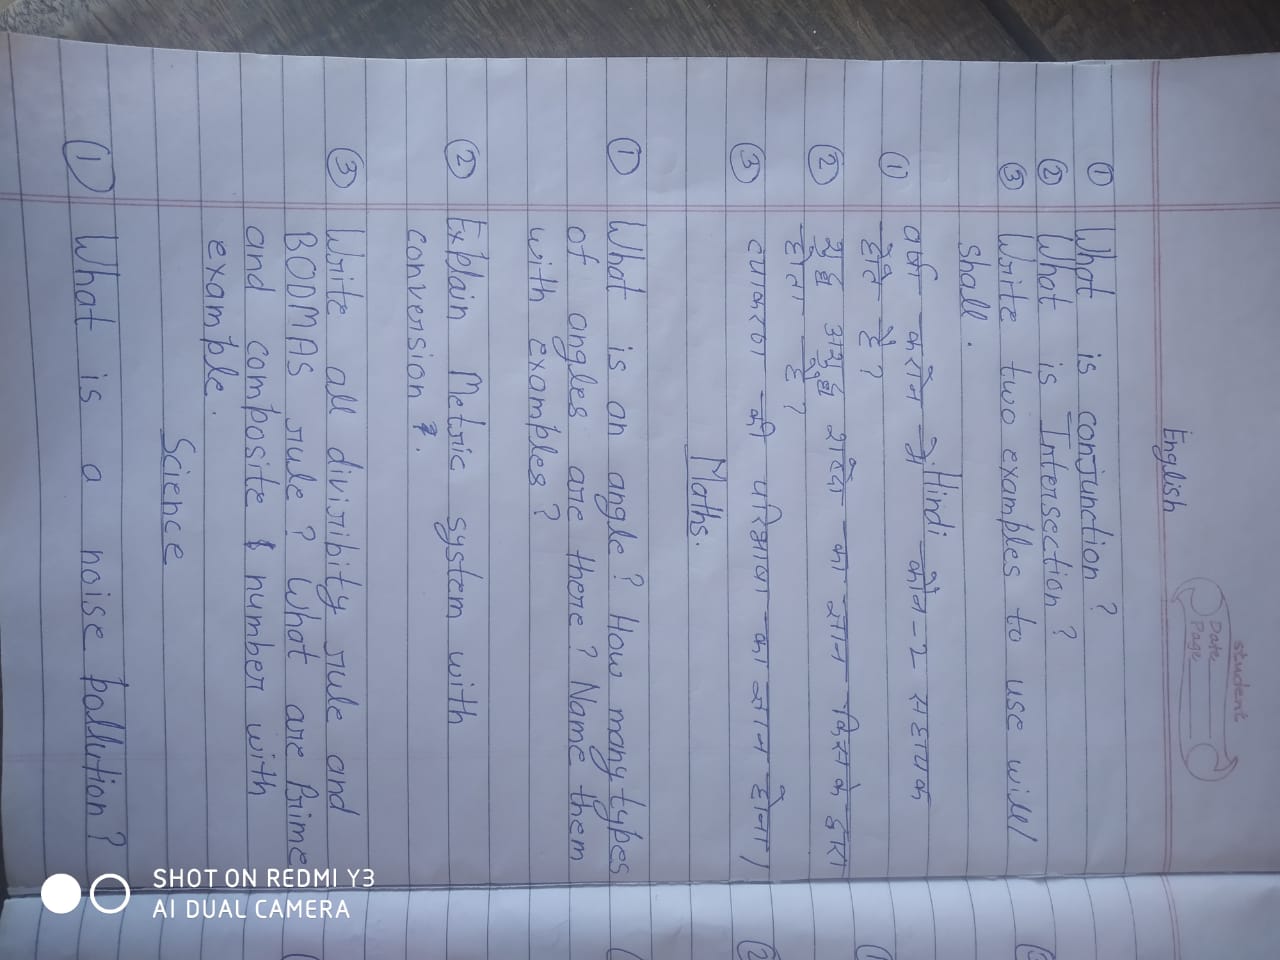 student
Date
Page
English
① What is conjunction?
② What is Intersection?
③ Write two examples to use will/
shall.
Hindi
① वर्ण करोन में कोन-2 सहायक
होते है ?
② शुद्ध अशुद्ध शब्दो का ज्ञान किसके द्वारा
होता है ?
③ व्याकरण की परिभाषा का ज्ञान होना।
Maths.
① What is an angle? How many types
of angles are there? Name them
with examples?
② Explain Metric system with
conversion.
③ Write all divisibity rule and
BODMAS rule? What are Prime
and composite number with
example.
Science
① What is a noise pollution?
SHOT ON REDMI Y3
AI DUAL CAMERA